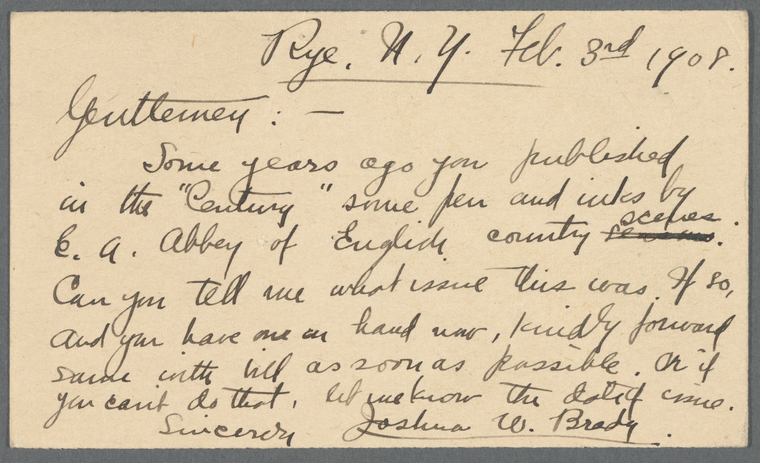 Rye, N.Y. Feb. 3rd 1908.
Gentlemen : —
Some years ago you published
in the "Century" some pen and inks by
E. A. Abbey of English country scenes.
Can you tell me what issue this was. If so,
and you have one on hand now, kindly forward
same with bill as soon as possible. Or if
you can't do that, let me know the date of issue.
Sincerely Joshua W. Brady.